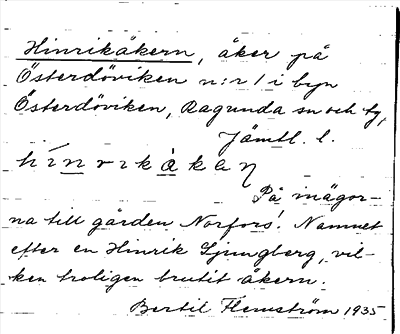 Hinrikåkern, åker på
Österdöviken n:r 1 i byn
Österdöviken, Ragunda sn och tg,
Jämtl. l.
På inägor-
na till gården Norfors. Namnet
efter en Hinrik Ljungberg, vil-
ken troligen brutit åkern.
Bertil Flemström 1935